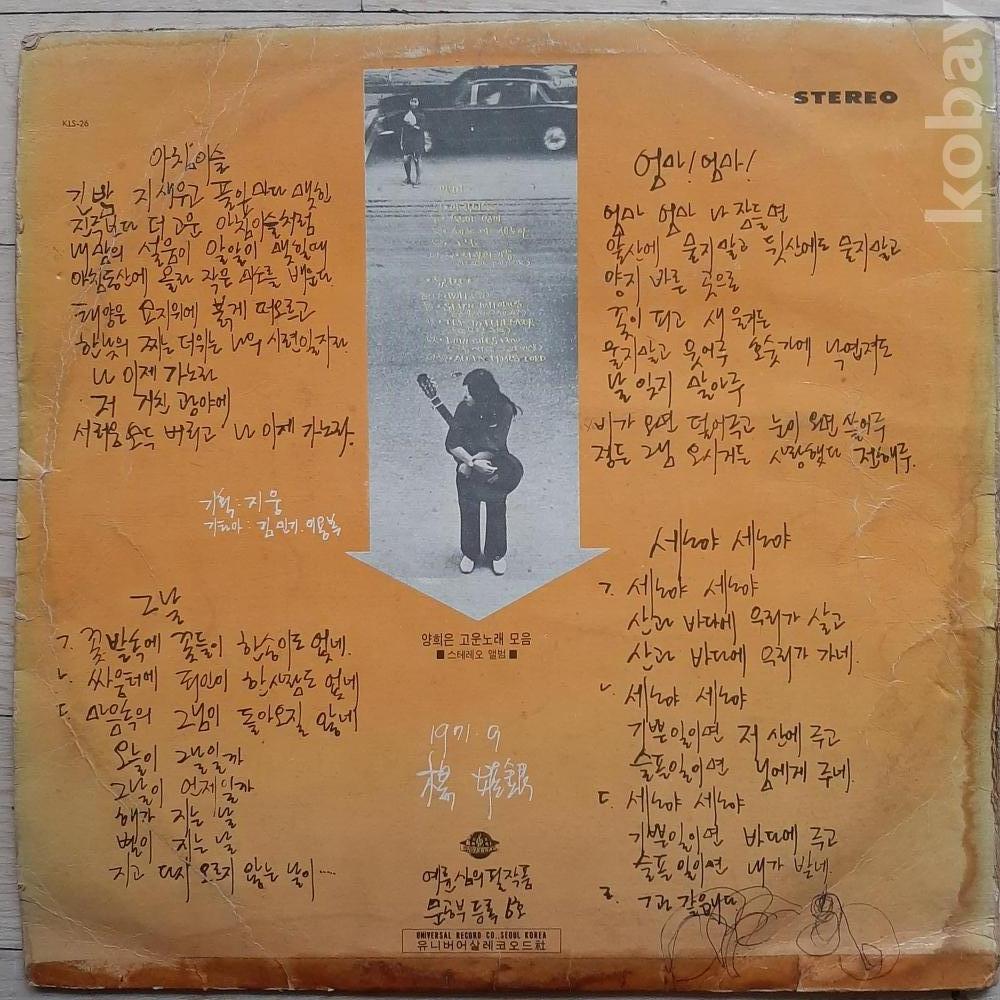 kobay
STEREO
KLS-26
아침이슬
긴 밤 지새우고 풀잎마다 맺힌
진주보다 더 고운 아침이슬처럼
내 맘의 설움이 알알이 맺힐때
아침동산에 올라 작은 미소를 배운다.
태양은 묘지위에 붉게 떠오르고
한낮의 찌는 더위는 나의 시련일지라.
나 이제 가노라
저 거친 광야에
서러움 모두 버리고 나 이제 가노라.
기획: 지웅
기타아: 김민기. 이용복
엄마! 엄마!
엄마 엄마 나 잠들면
앞산에 묻지말고 뒷산에도 묻지말고
양지 바른 곳으로
꽃이 피고 새 울거든
울지말고 웃어주 호숫가에 낙엽져도
날 잊지 말아주
비가 오면 덮어주고 눈이 오면 쓸어주
정든 그님 오시거든 사랑했다 전해주.
그날
ㄱ. 꽃밭속에 꽃들이 한송이도 없네.
ㄴ. 싸움터에 죄인이 한사람도 없네
ㄷ. 마음속의 그님이 돌아오질 않네
오늘이 그날일까
그날이 언제일까
해가 지는 날
별이 지는 날
지고 다시 오르지 않는 날이.....
세노야 세노야
ㄱ. 세노야 세노야
산과 바다에 우리가 살고
산과 바다에 우리가 가네.
ㄴ. 세노야 세노야
기쁜일이면 저 산에 주고
슬픈일이면 님에게 주네.
ㄷ. 세노야 세노야
기쁜일이면 바다에 주고
슬픈일이면 내가 받네.
ㄹ. ㄱ과 같습니다
양희은 고운노래 모음
■ 스테레오 앨범 ■
1971. 9
楊 姬銀
예륜심의필작품
문공부 등록 6호
UNIVERSAL RECORD CO., SEOUL KOREA
유니버어살레코오드社